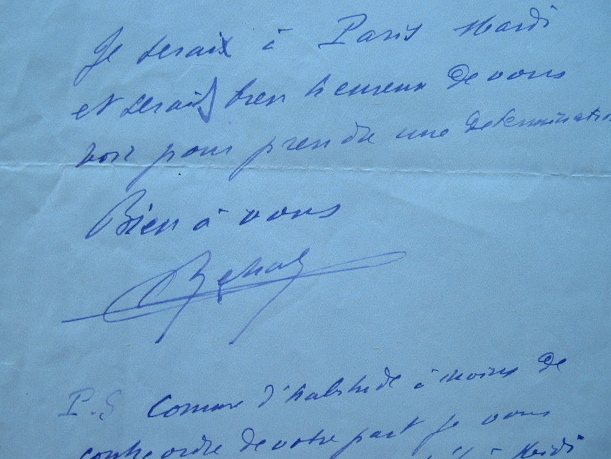 Je serais à Paris Mardi
et serais bien heureux de vous
voir pour prendre une determination
Bien à vous
P.S Comme d'habitude à moins de
contre ordre de votre part je vous
à Midi